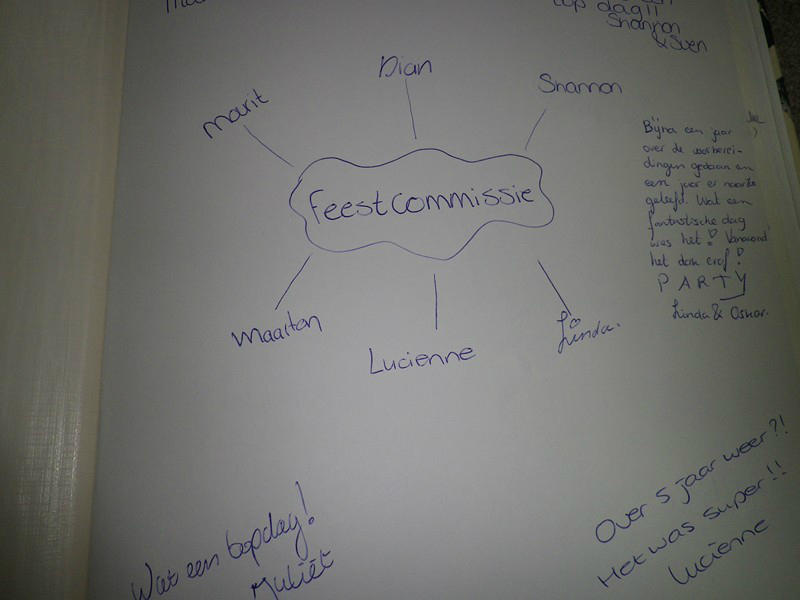 top dag!!
Shannon
& Sven
Dian
Shannon
marit
feestcommissie
Maarten
Lucienne
Linda.
Bijna een jaar
over de voorberei-
dingen gedaan en
een jaar er naartoe
geleefd. Wat een
fantastische dag
was het! Vanavond
het dak eraf!
PARTY
Linda & Oskar.
Over 5 jaar weer?!
Het was super!!
Lucienne
Wat een topdag!
Juliët